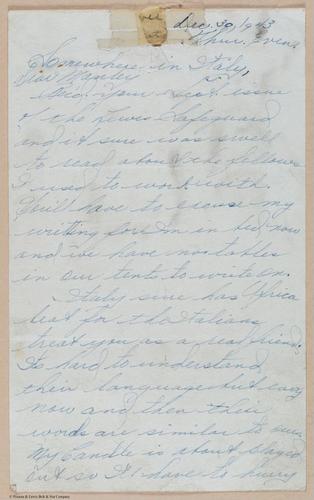 Dec. 30, 1943
Thur. Evening
Somewhere in Italy,
Dear Manley
Rec'd your last issue
of the Lewis Safeguard
and it sure was swell
to read about the fellows
I used to work with.
You'll have to excuse my
writing for I'm in bed now
and we have no tables
in our tents to write on.
Italy sure has Africa
beat for the Italians
treat you as a real friend.
Its hard to understand
their language but every
now and then their
words are similar to ours.
My Candle is about played
out so I'll have to hurry
© Preston & Lewis Bolt & Nut Company